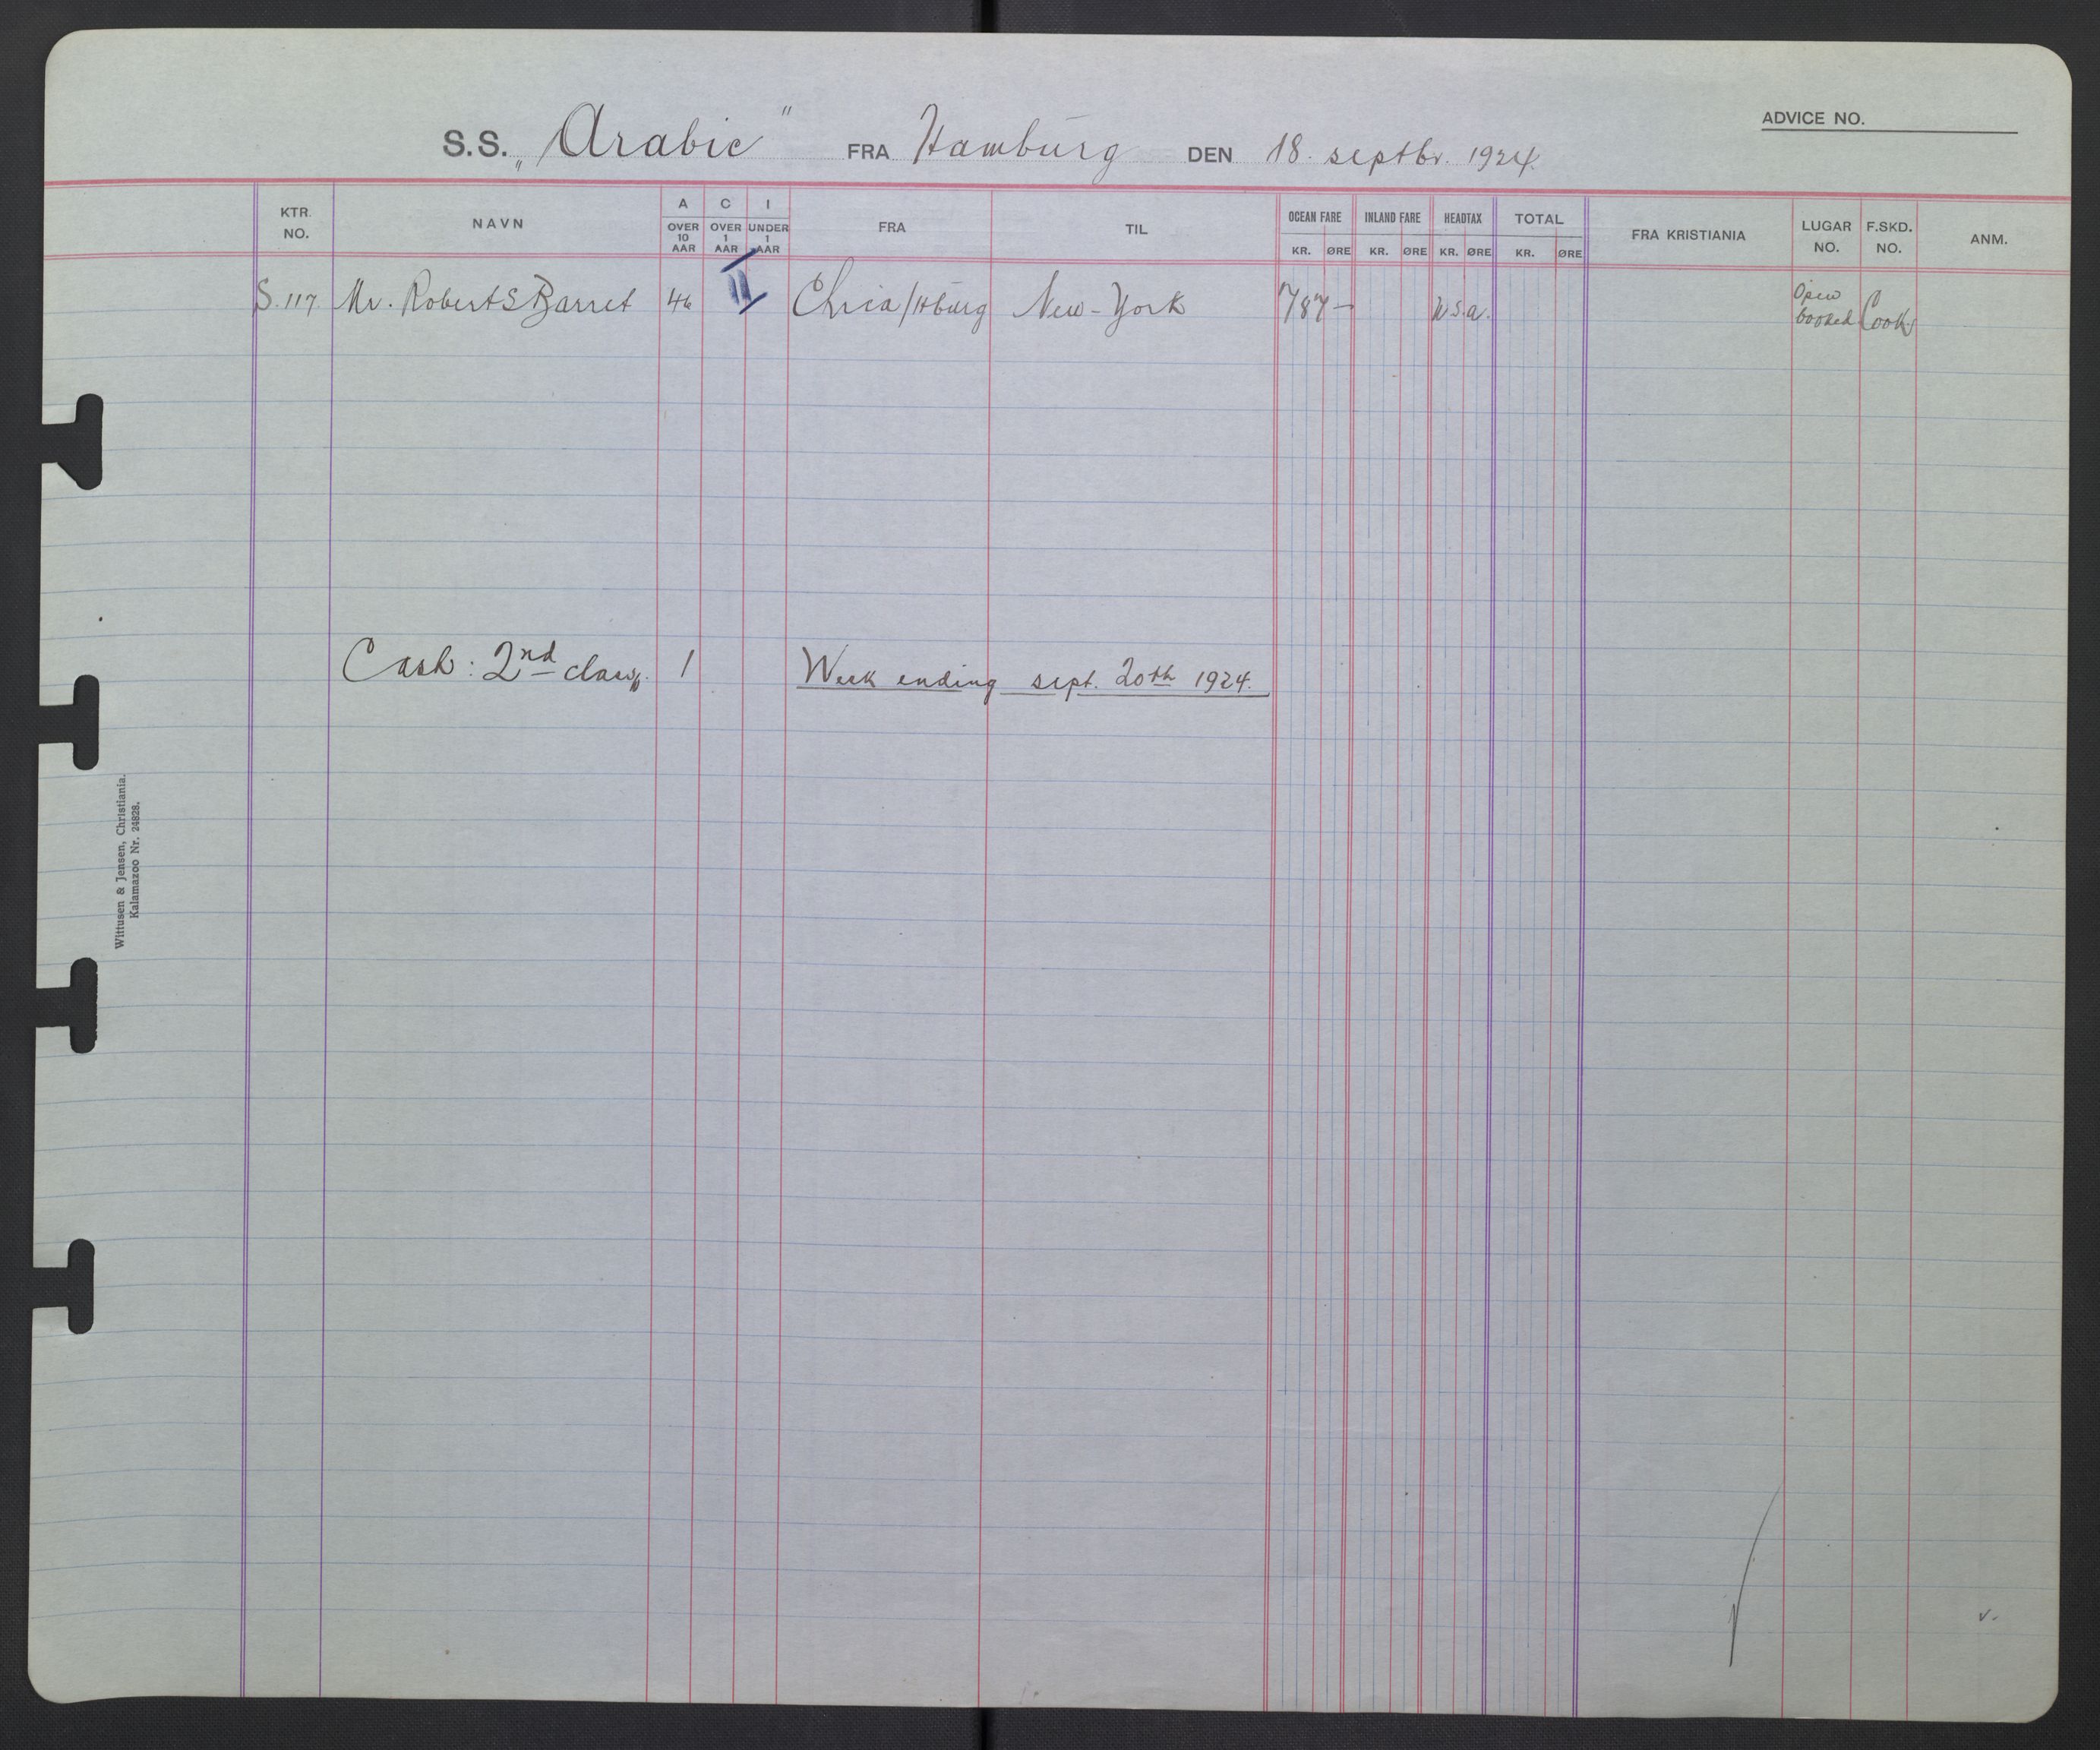 ADVICE NO.
S.S. „Arabic" FRA Hamburg DEN 18. septbr. 1924.
KTR. NO. NAVN A OVER 10 AAR C OVER 1 AAR I UNDER 1 AAR FRA TIL OCEAN FARE KR. ØRE INLAND FARE KR. ØRE HEADTAX KR. ØRE TOTAL KR. ØRE FRA KRISTIANIA LUGAR NO. F.SKD. NO. ANM.
S. 117. Mr. Robert S Barret 46 II Chria/Hburg New-York 787 — U.S.a. Open booked Cooks
Cash: 2nd class. 1 Week ending sept. 20th 1924.
Wittusen & Jensen, Christiania.
Kalamazoo Nr. 24828.